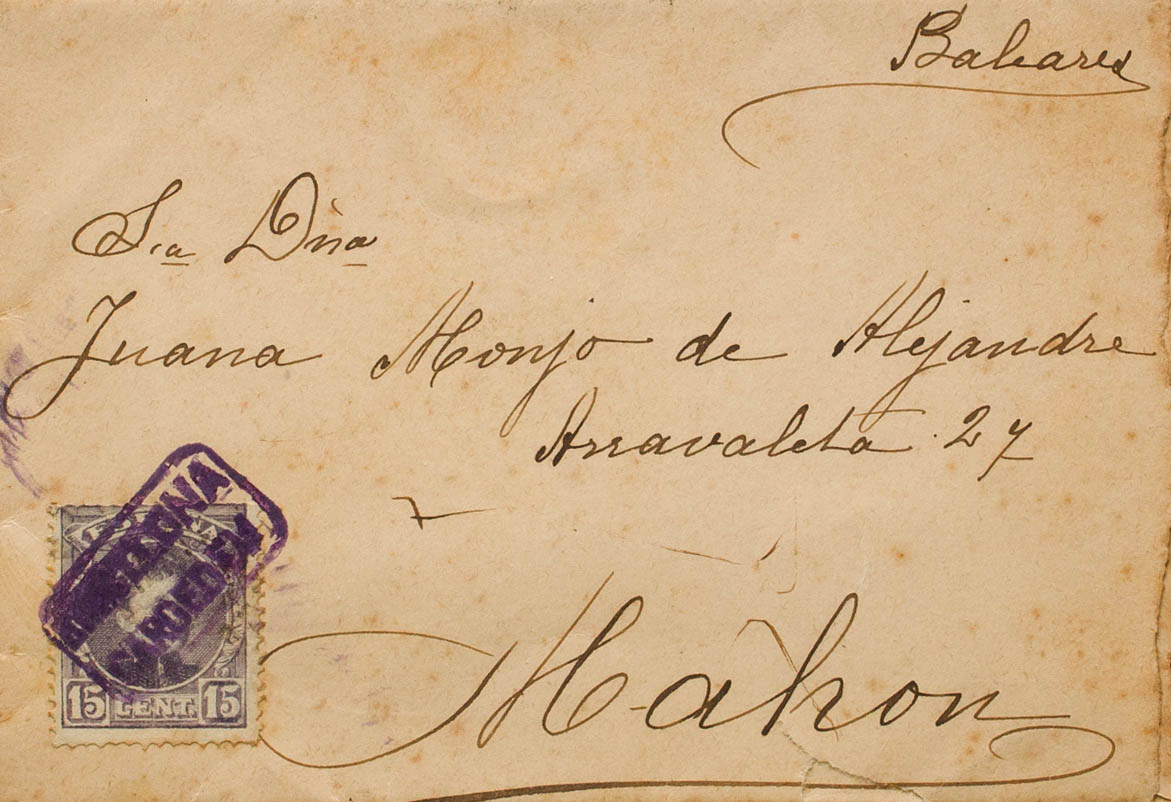 Baleares
S.ª Dña
Juana Monjo de Alejandre
Arravaleta 27
Mahon
15 CENT. 15